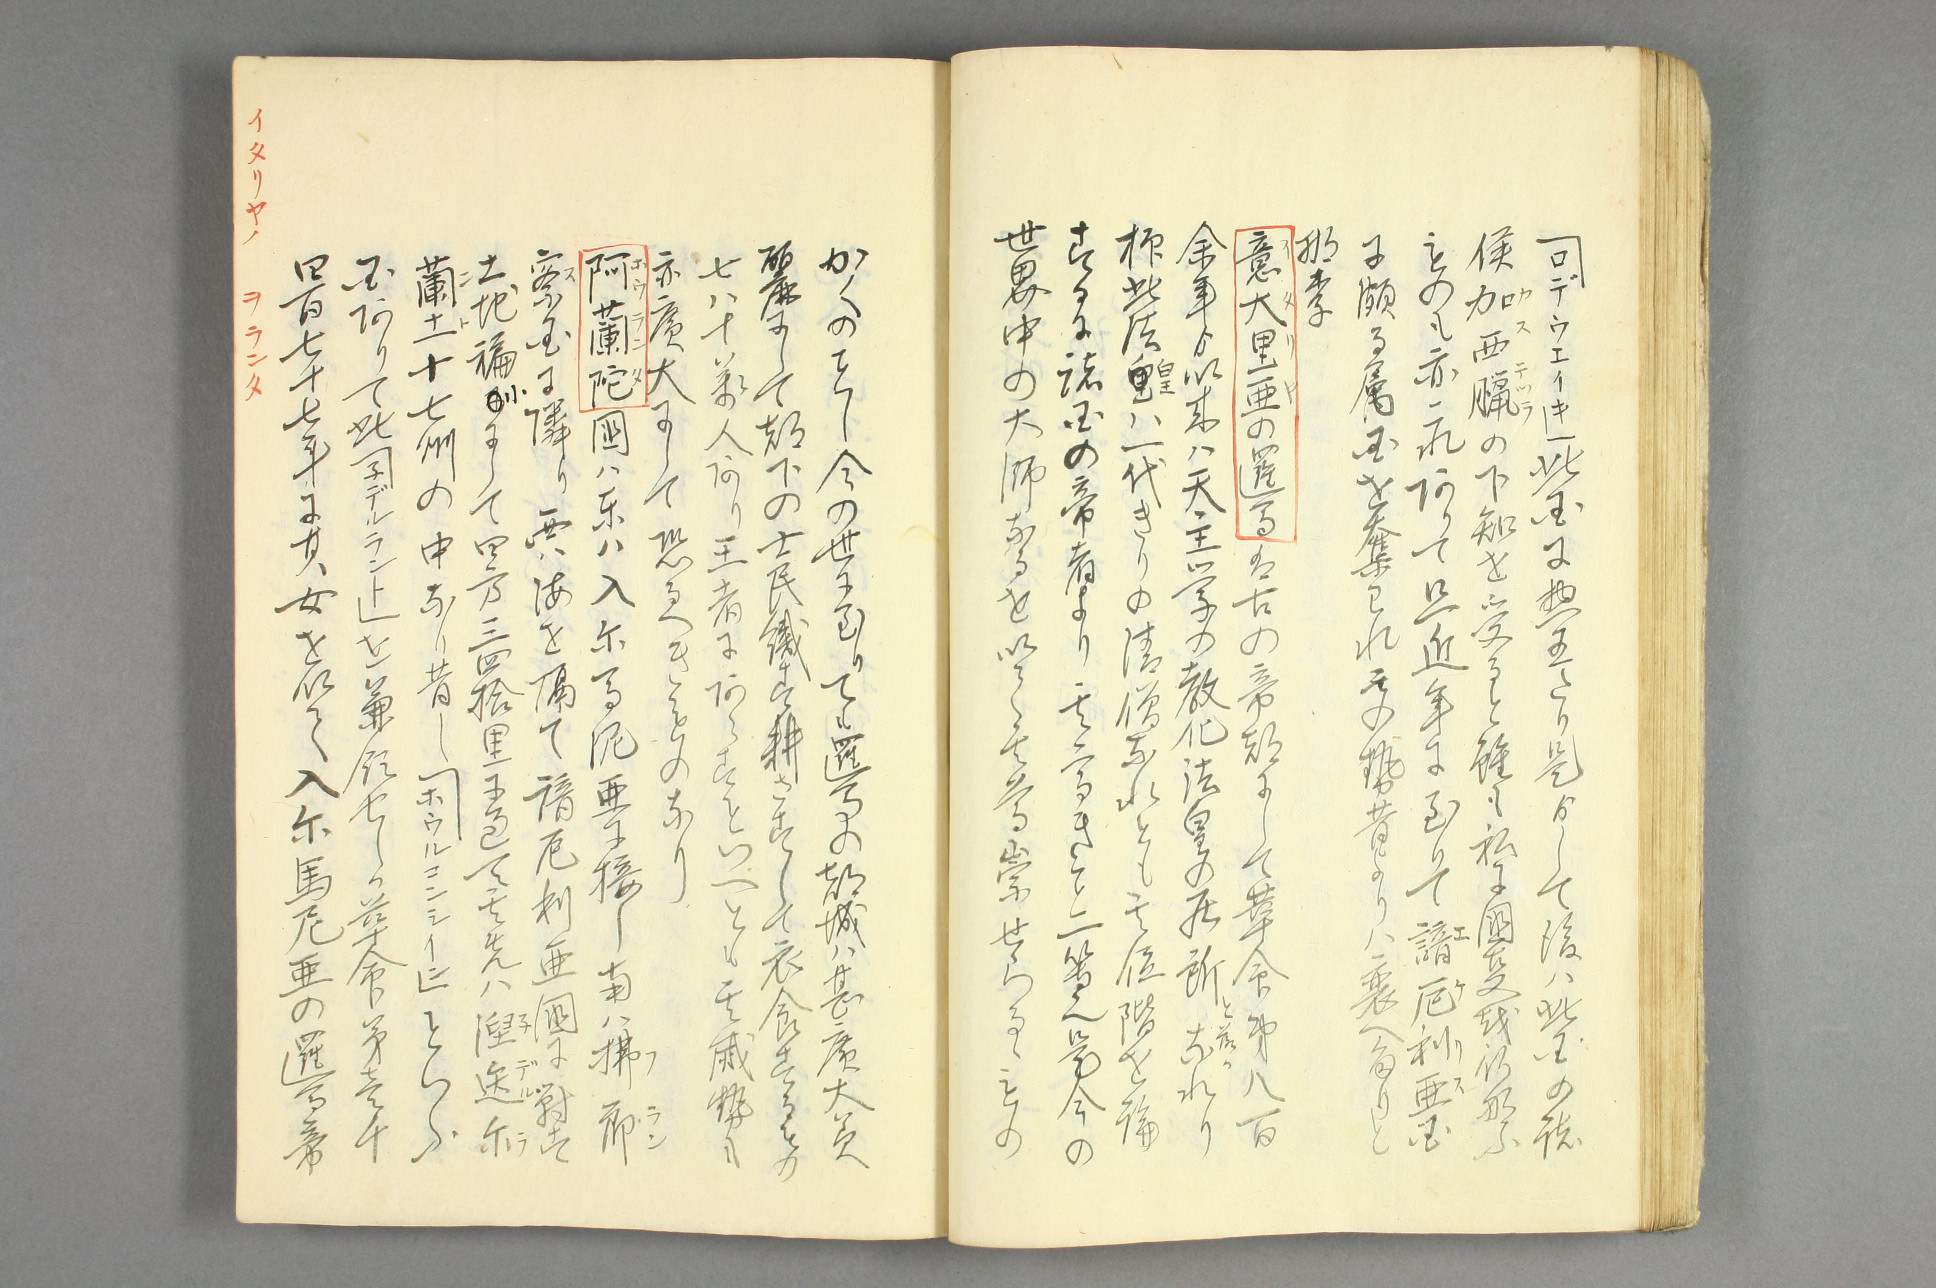 「ロデウエイキ」此国に興至たり是よりして後ハ此国の諸
侯加西臘の下知を受ると雖も私に國王政を行ふ
ものも亦之れ阿りて且近年に至りて諳厄利亜国
に頗る属国を奪ハれ其の勢昔よりハ衰へ劣りしと
意大里亜の邏馬
ハ古の帝都にして革命第八百
余年より以来ハ天主学の教化法皇の居所となれり
抑此法皇ハ一代きりの清僧なれとも其位階を論
するに諸国の帝者より其高きこと二等んて今の
世界中の大師なるを以て其尊崇せらるゝものゝ
かくのことし今の世に至りても邏馬の都城ハ甚廣大美
麗にして都下の士民織す耕さすして衣食するもの
七八十萬人阿り王者に阿らすといへとも其威勢も
亦廣大にして恐るへきものなり
阿蘭陀國ハ東ハ入尓馬泥亜に接し南ハ拂郎
察国に隣り西ハ海を隔て諳厄利亜國に對す
土地褊小にして四方三四拾里に過て其先ハ涅迭尓
蘭土十七州の中なり昔し「ホウルコンシイン」といふ
国阿りて此「子デルラント」を兼領せしか革命第壱千
四百七十七年に其女を以て入尓馬尼亜の邏馬帝
イタリヤノ ヲランタ